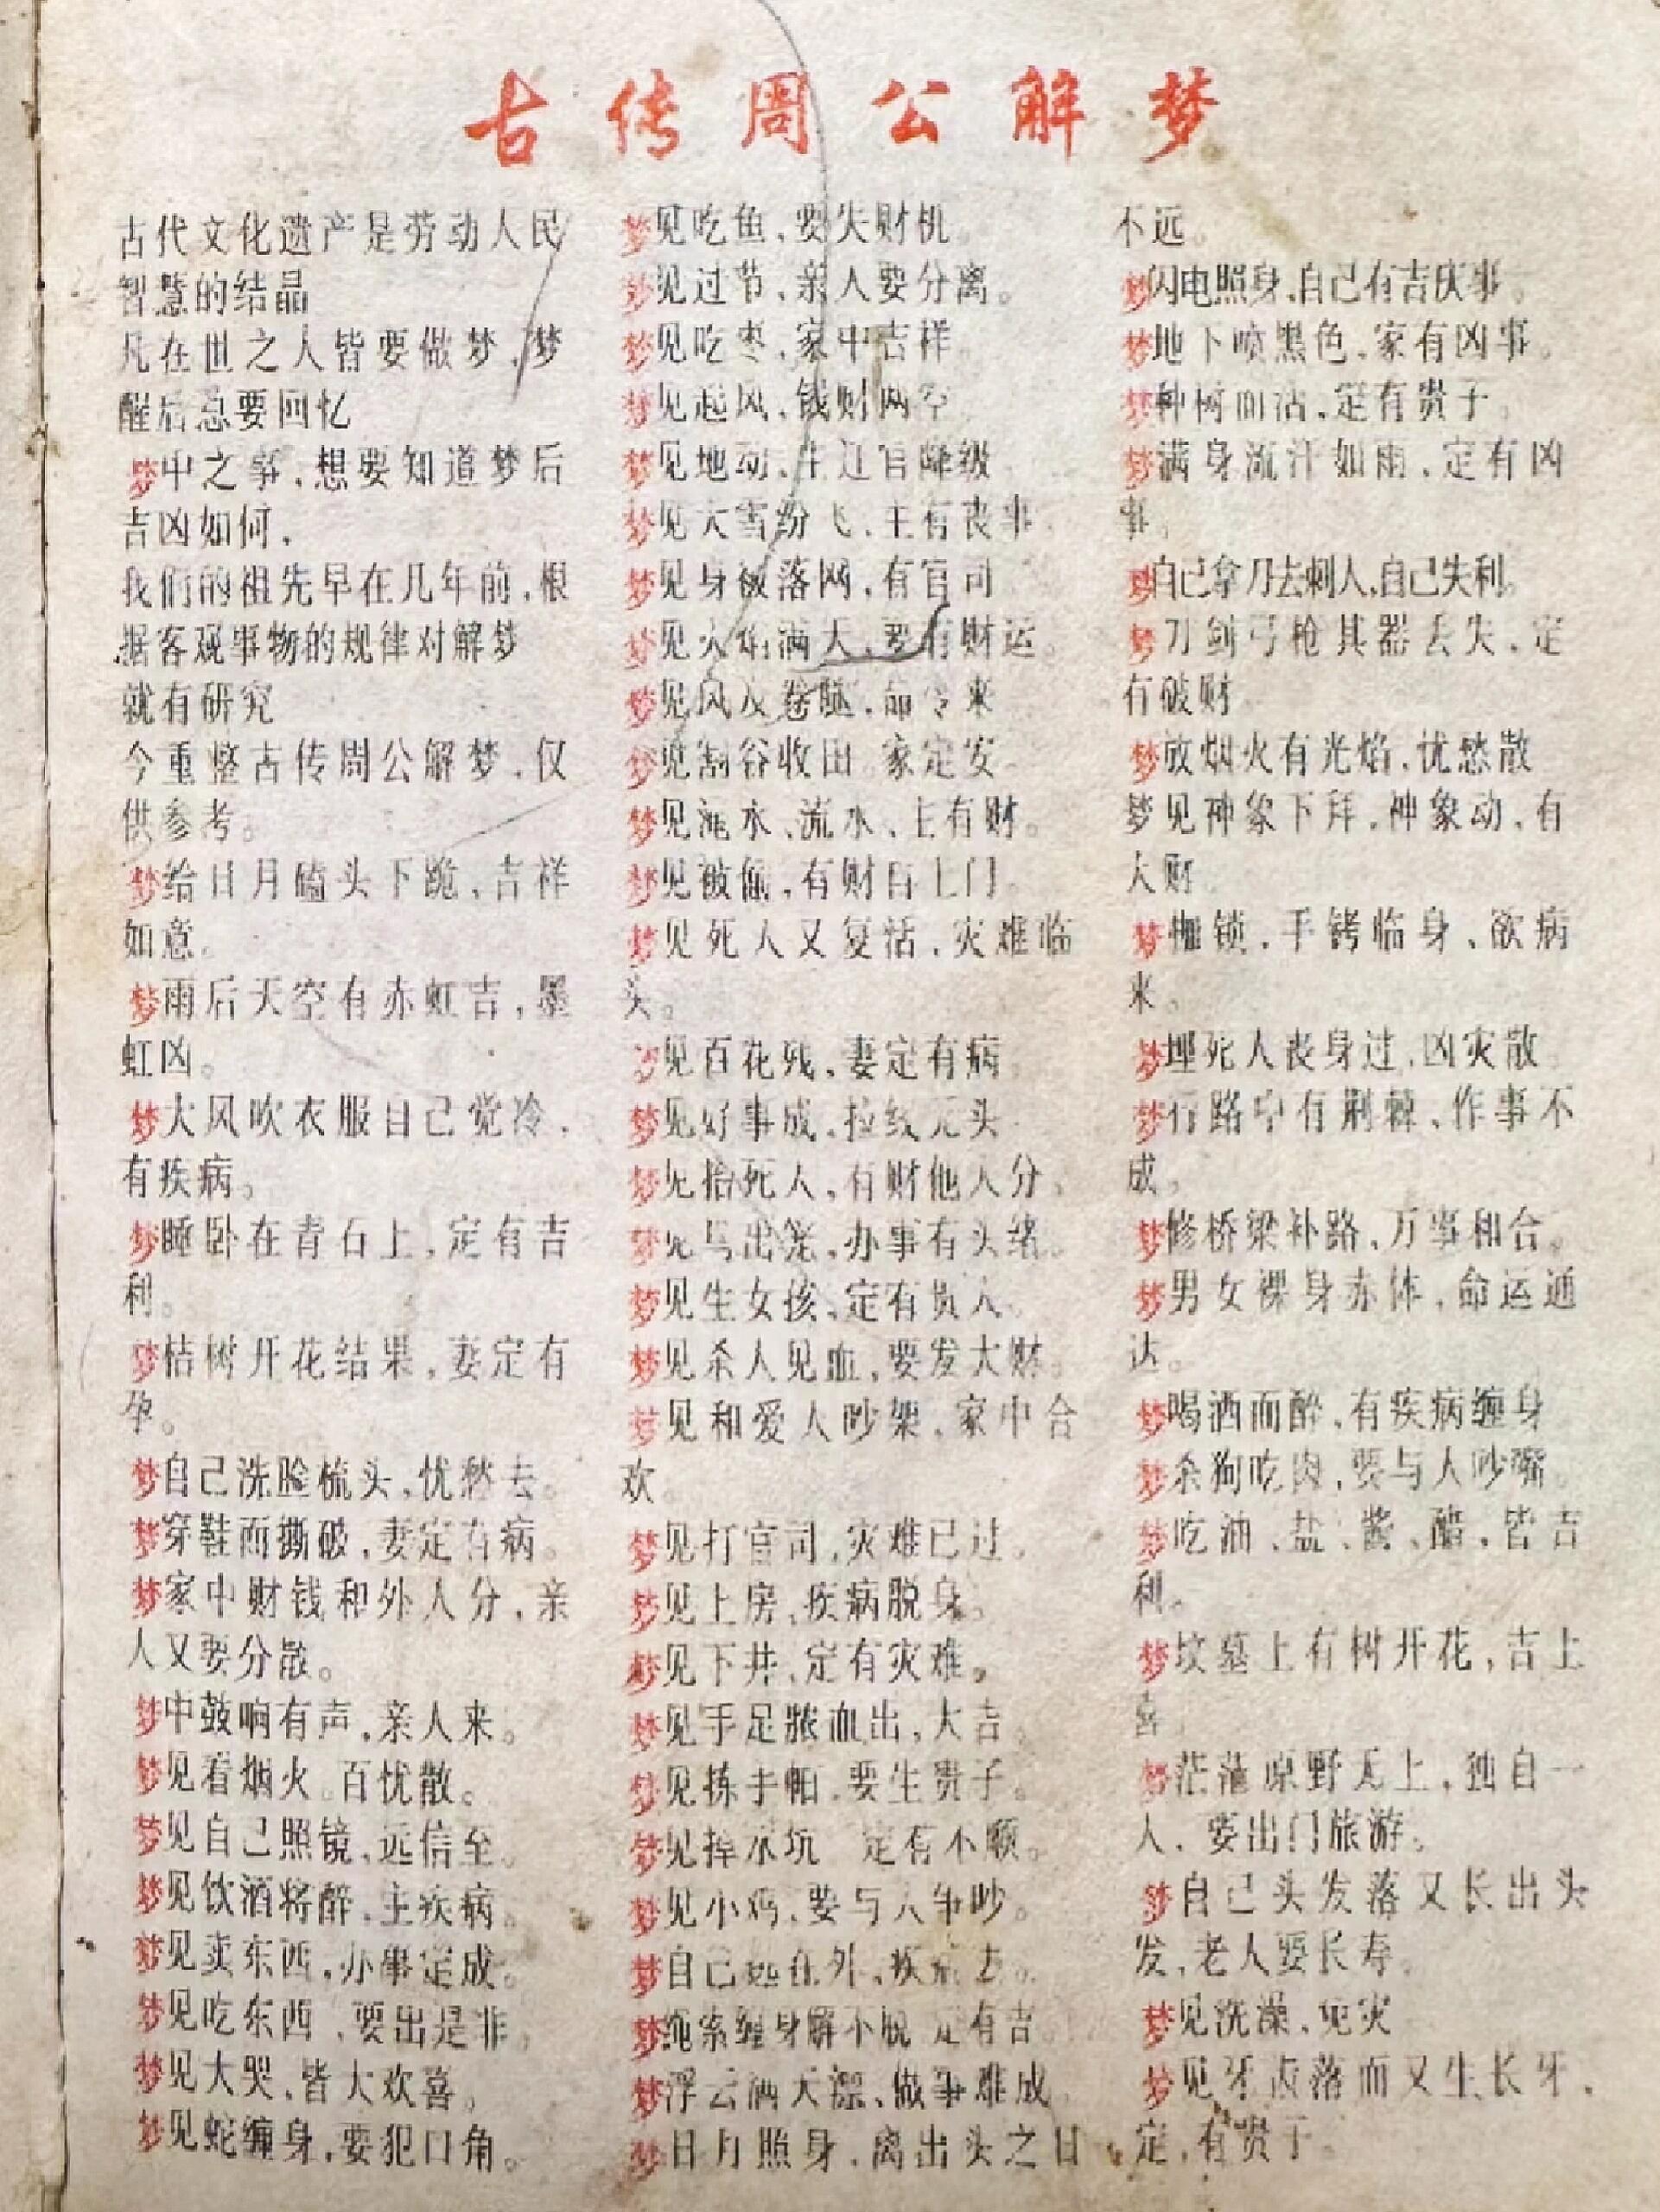 古传周公解梦
古代文化遗产是劳动人民
智慧的结晶
凡在世之人皆要做梦,梦
醒后总要回忆
梦中之事,想要知道梦后
吉凶如何,
我们的祖先早在几年前,根
据客观事物的规律对解梦
就有研究
今重整古传周公解梦,仅
供参考。
梦给日月磕头下跪、吉祥
如意。
梦雨后天空有赤虹吉,墨
虹凶。
梦大风吹衣服自己觉冷,
有疾病。
梦睡卧在青石上,定有吉
利。
梦桔树开花结果,妻定有
孕。
梦自己洗脸梳头,忧愁去。
梦穿鞋而撕破,妻定有病。
梦家中财钱和外人分,亲
人又要分散。
梦中鼓响有声,亲人来。
梦见看烟火。百忧散。
梦见自己照镜、远信至。
梦见饮酒将醉、主疾病。
梦见卖东西,办事定成。
梦见吃东西、要出是非。
梦见大哭、皆大欢喜。
梦见蛇缠身,要犯口角。
梦见吃鱼、要失财机。
梦见过节、亲人要分离。
梦见吃枣、家中吉祥。
梦见起风、钱财两空
梦见地动、主迁官降级
梦见大雪纷飞、主有丧事
梦见身被落网,有官司
梦见火焰满天、要有财运。
梦见风 卷 来
梦见割谷收田 家定安
梦见 水、流水、主有财。
梦见被偷,有财自上门。
梦见死人又复活,灾难临
头。
梦见百花残、妻定有病
梦见好事成、拉线无头
梦见抬死人,有财他人分。
梦见马出笼,办事有头绪。
梦见生女孩、定有贵人。
梦见杀人见血,要发大财。
梦见和爱人吵架,家中合
欢。
梦见打官司,灾难已过。
梦见上房、疾病脱身。
梦见下井、定有灾难。
梦见手足脓血出,大吉。
梦见拣手帕,要生贵子。
梦见掉水坑 定有不顺。
梦见小鸡、要与人争吵。
梦自己 在外、疾病去。
梦绳索缠身解不脱 定有吉
梦浮云满天 、做事难成
梦日月照身、离出头之日
不远。
梦闪电照身,自己有吉庆事。
梦地下喷黑色、家有凶事。
梦种树而活、定有贵子。
梦满身流汗如雨、定有凶
事。
梦自己拿刀去刺人,自己失利。
梦刀剑弓枪其器丢失、定
有破财
梦放烟火有光焰,忧愁散
梦见神象下拜,神象动、有
大财
梦枷锁、手铐临身、欲病
来。
梦埋死人丧身过,凶灾散
梦行路中有荆棘、作事不
成。
梦修桥梁补路、万事和合。
梦男女裸身赤体,命运通
达。
梦喝酒而醉,有疾病缠身
梦杀狗吃肉,要与人吵嘴
梦吃油、盐、酱、醋,皆吉
利。
梦坟墓上有树开花,吉上
喜
梦茫茫原野无上,独自一
人、要出门旅游。
梦自己头发落又长出头
发,老人要长寿。
梦见洗澡、免灾
梦见牙齿落而又生长牙、
定,有贵子。